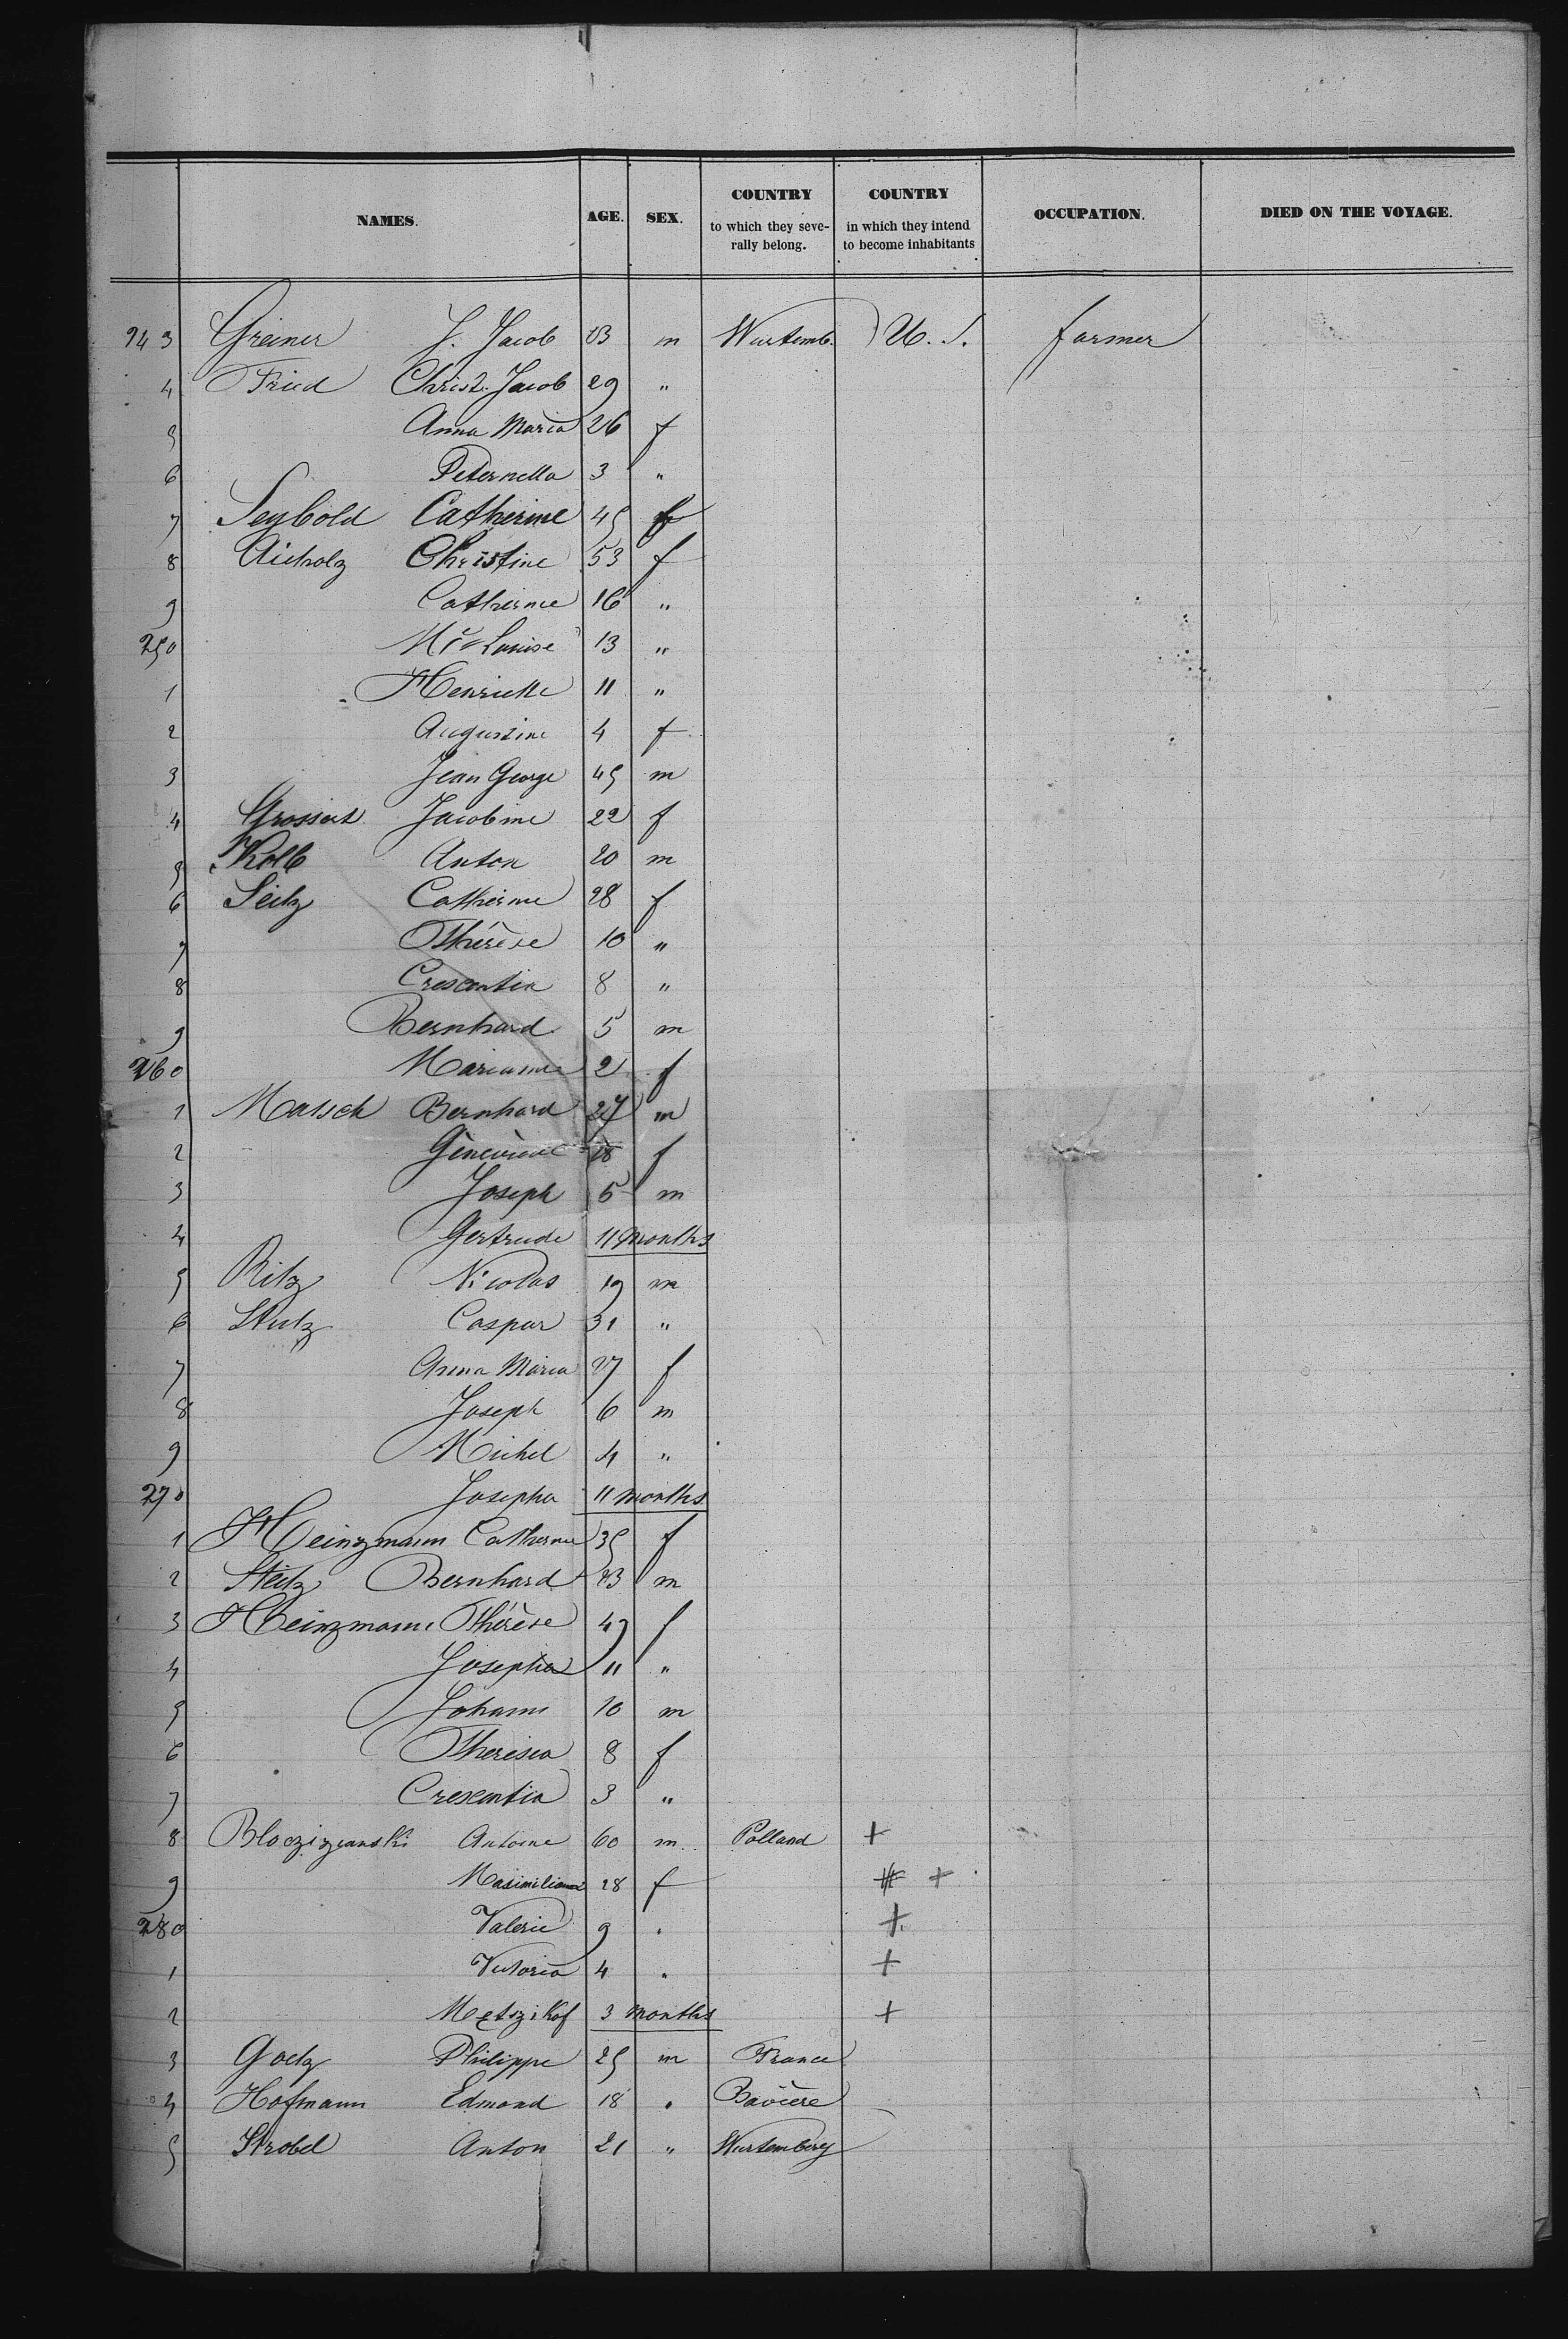 NAMES. AGE. SEX. COUNTRY to which they severally belong. COUNTRY in which they intend to become inhabitants OCCUPATION. DIED ON THE VOYAGE.
243 Greiner J. Jacob m Wurtemb. U. S. farmer
4 Fried Christ. Jacob 29 "
5 Anna Maria 26 f
6 Peternella 3 "
7 Seybold Catherine 45 f
8 Aicholz Christine 53 f
9 Catherine 16 "
250 Louise 13 "
1 Henriette 11 "
2 Augustine 4 f
3 Jean George 45 m
4 Jacobine 22 f
5 Kolb Anton 20 m
6 Seitz Catherine 28 f
7 Thérèse 10 "
8 Crescentia 8 "
9 Bernhard 5 m
260 Marianne 2 f
1 Matsch Bernhard 27 m
2 Géneviève f
3 Joseph 5 m
4 Gertrude 11 months
5 Ritz Nicolas 19 m
6 Stutz Caspar 31 "
7 Anna Maria 27 f
8 Joseph 6 m
9 Michel 4 "
270 Josepha 11 months
1 Heinzmann Catherine 35 f
2 Steitz Bernhard m
3 Heinzmann Thérèse 49 f
4 Josepha 11 "
5 Johann 10 m
6 Theresia 8 f
7 Crescentia 3 "
8 Antoine 60 m Polland +
9 28 f +
280 Valerie 9 " +
1 Victoria 4 " +
2 3 months +
3 Goetz Philippe 25 m France
4 Hofmann Edmond 18 " Bavière
5 Strobel Anton 21 " Wurtemberg